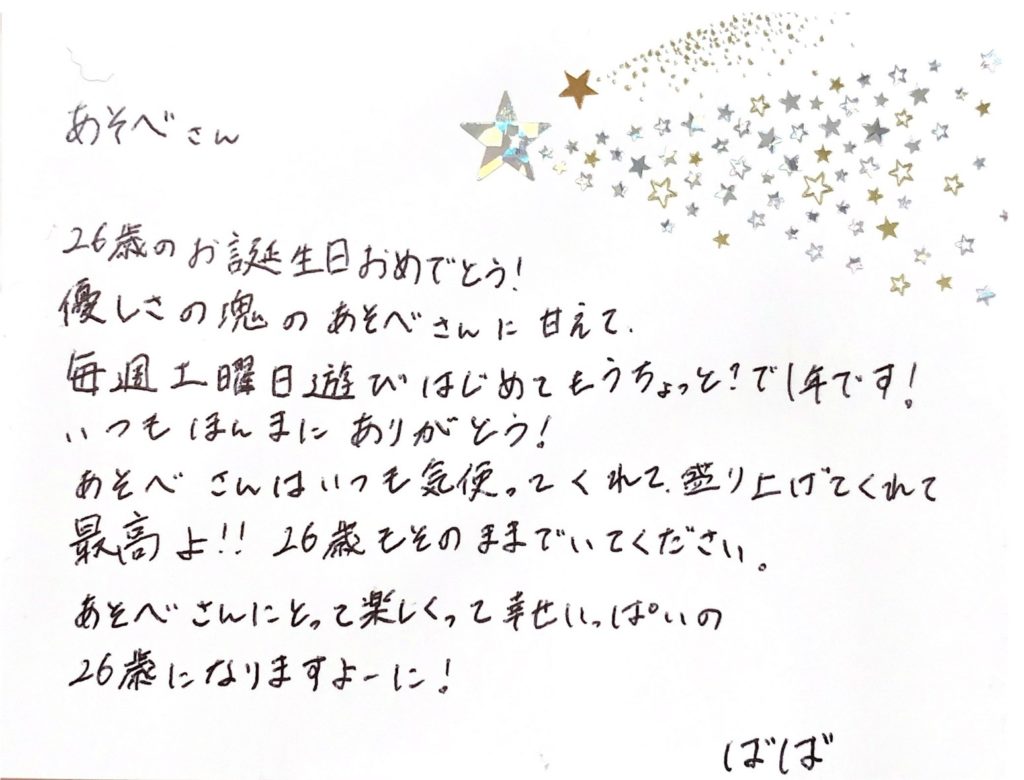 あそべさん
26歳のお誕生日おめでとう!
優しさの塊のあそべさんに甘えて、
毎週土曜日遊びはじめてもうちょっと?で1年です!
いつもほんまにありがとう!
あそべさんはいつも気使ってくれて、盛り上げてくれて
最高よ!! 26歳もそのままでいてください。
あそべさんにとって楽しくって幸せいっぱいの
26歳になりますよーに!
ばば